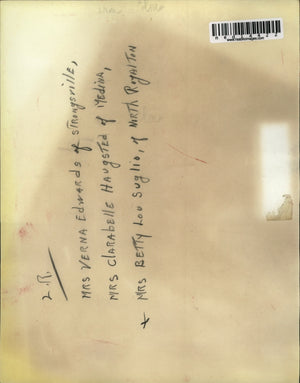 L.R.
MRS VERNA EDWARDS of STRONGSVILLE,
MRS CLARABELLE HAUGSTED of MEDINA,
+ MRS BETTY LOU SUGLIO, of NORTH ROYALTON